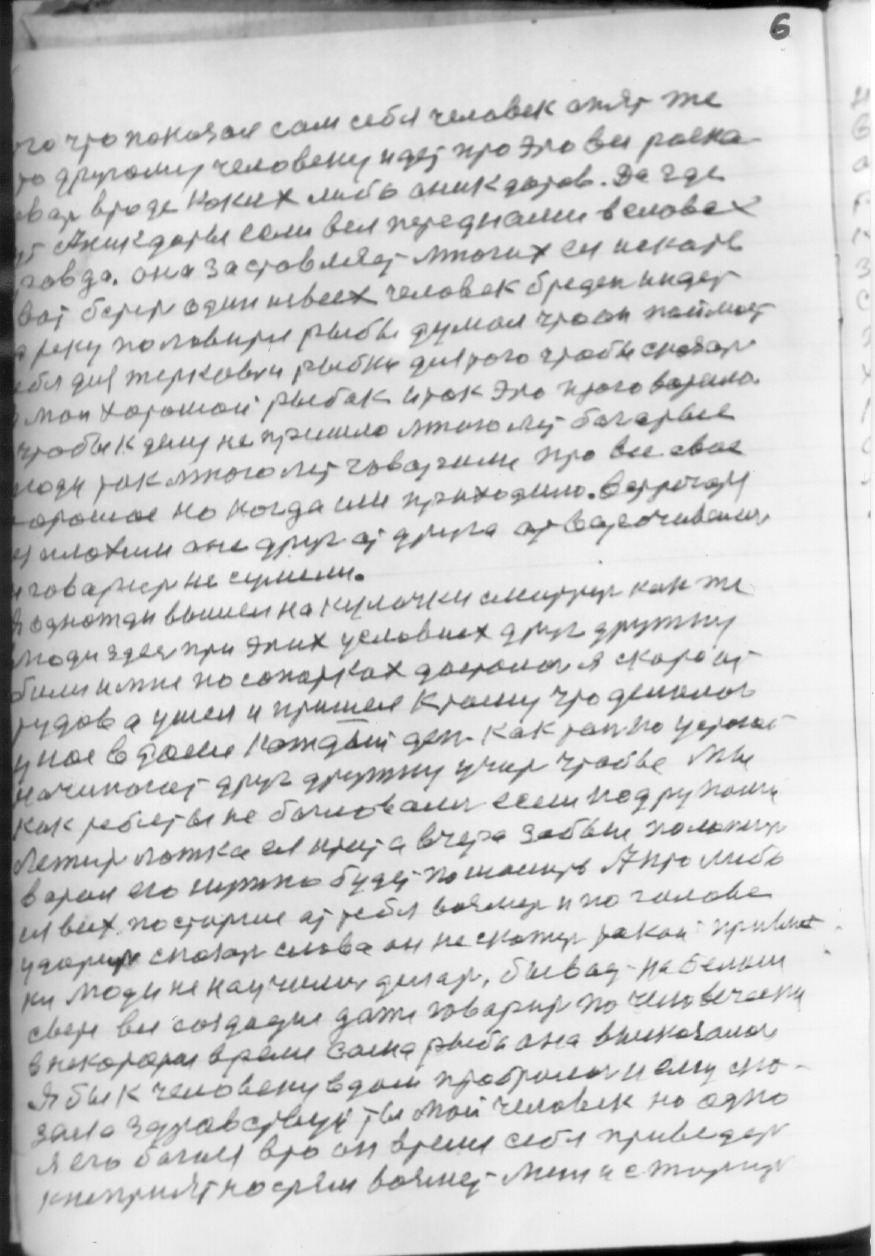 6
что показал сам себя человек опят же
другому человеку идет про это все раска-
вроде коких либо оникдотов. Да где
Аникдоты если вся перед нами в словах
она заставляет многих ея искать
берет один из всех человек бредет идет
реку половить рыбы думая что он поймает
для жерковки рыбки для того чтобы сказат
мол хороший рыбак и так это
чтобы к делу не пришло много лет богатые
люди так много лет говорили про все свое
хорошое но когда им приходило. встречат
с плохим оне друг от друга отворочивалис
и говорит не сумели.
Я однажды вышел на кулочки смотрет как же
люди здес при этих условиях друг дружку
били и мне по сопаткам досталос я скоро от
туда ушел и пришел к тому что делалос
у нас в доме каждый ден. Как там по
начинают друг дружку учит чтобы мы
как ребяты не баловалис если под руками
лежит ложка ея нет а вчера забыл положит
его нужно будет А кто либо
из всех постарше от тебя возмет и по голове
ударит сказат слова он не скажет такой
люди не научилис делат, бывает на белом
свете все создает даже говорит по человечески
в некоторое время сама рыба она высказалас
Я бы к человеку в дом пробралас и ему ска-
зала здравствуй ты мой человек но одно
я его боюся в то он время себя приведет
к неприятностям возмет меня с жарит